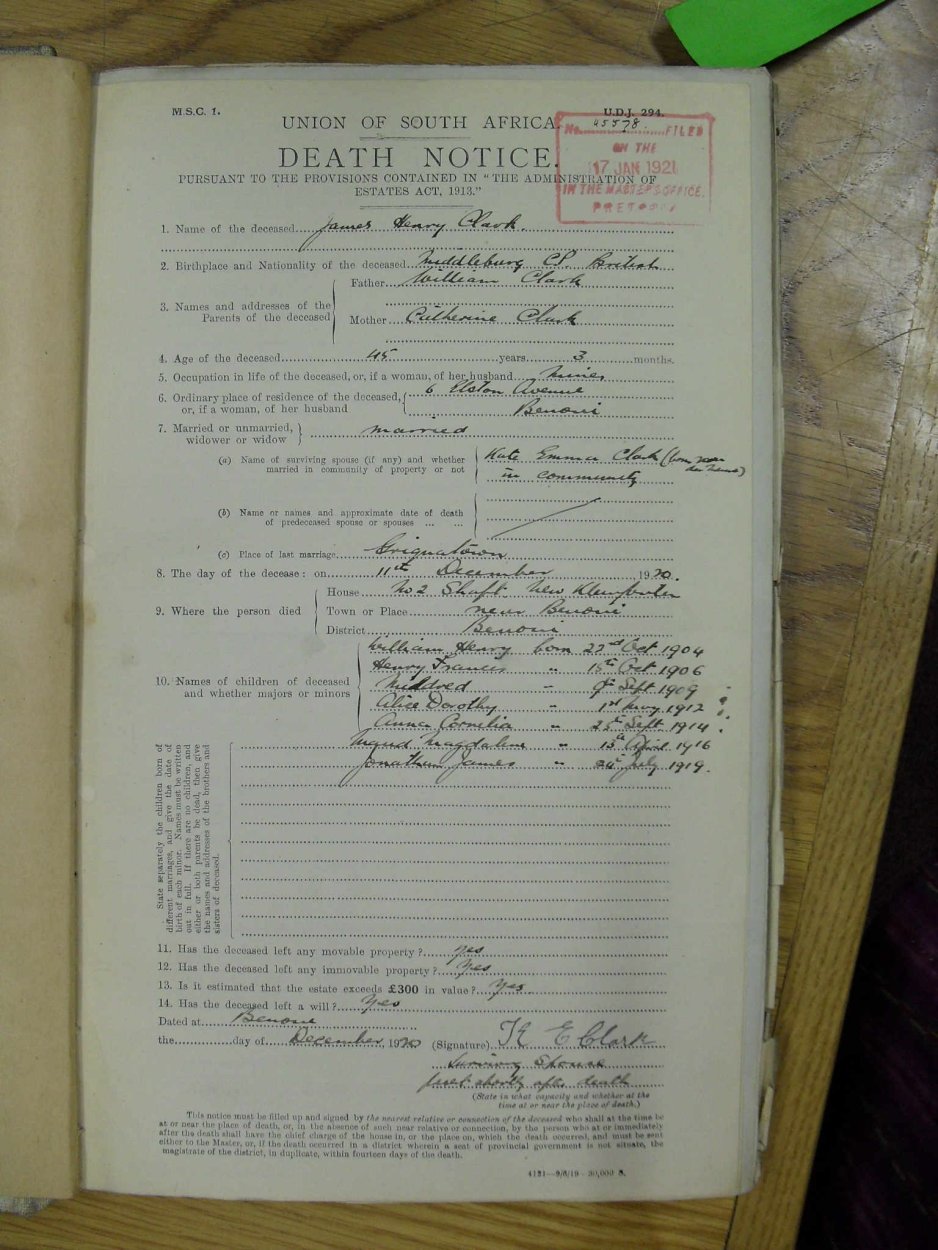 M.S.C. 1.
U.D.J. 294.
UNION OF SOUTH AFRICA.
No. 45578 FILED
ON THE
17 JAN 1921
IN THE MASTER'S OFFICE.
PRETORIA
DEATH NOTICE.
PURSUANT TO THE PROVISIONS CONTAINED IN "THE ADMINISTRATION OF
ESTATES ACT, 1913."
1. Name of the deceased James Henry Clark.
2. Birthplace and Nationality of the deceased Middleburg CP. British
3. Names and addresses of the Parents of the deceased
Father William Clark
Mother Catherine Clark
4. Age of the deceased 45 years 3 months.
5. Occupation in life of the deceased, or, if a woman, of her husband Miner
6. Ordinary place of residence of the deceased, or, if a woman, of her husband
6 Elston Avenue
Benoni
7. Married or unmarried, widower or widow } married
(a) Name of surviving spouse (if any) and whether married in community of property or not
Kate Emma Clark (born
in community
(b) Name or names and approximate date of death
of predeceased spouse or spouses ... ...
(c) Place of last marriage Griquatown
8. The day of the decease: on 11th December 1920.
9. Where the person died
House No 2 Shaft New Kleinfontein
Town or Place near Benoni
District Benoni
10. Names of children of deceased and whether majors or minors
William Henry born 22nd Oct 1904
Henry Francis " 15th Oct 1906
Mildred " 9th Sept 1909
Alice Dorothy " 1st 1912
Anna Cornelia " 25th Sept 1914
Maud Magdalene " 15th April 1916
Jonathan James " 24th July 1919.
State separately the children born of
different marriages, and give the date of
birth of each minor. Names must be written
out in full. If there are no children, and
either or both parents be dead, then give
the names and addresses of the brothers and
sisters of deceased.
11. Has the deceased left any movable property? yes
12. Has the deceased left any immovable property? Yes
13. Is it estimated that the estate exceeds £300 in value? Yes
14. Has the deceased left a will? Yes
Dated at Benoni
the day of December, 1920 (Signature) K E Clark
Surviving Spouse
shortly after death
(State in what capacity and whether at the
time at or near the place of death.)
This notice must be filled up and signed by the nearest relative or connection of the deceased who shall at the time be
at or near the place of death, or, in the absence of such near relative or connection, by the person who at or immediately
after the death shall have the chief charge of the house in, or the place on, which the death occurred, and must be sent
either to the Master, or, if the death occurred in a district wherein a seat of provincial government is not situate, the
magistrate of the district, in duplicate, within fourteen days of the death.
4121—9/6/19—30,000 S.